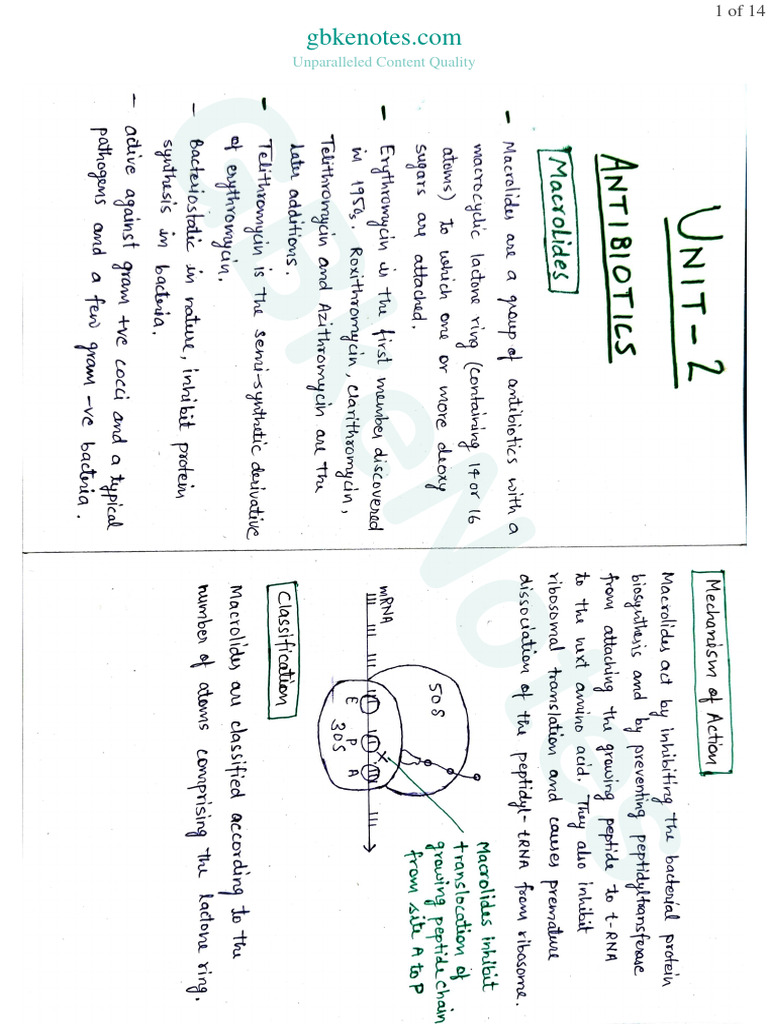 1 of 14
gbkenotes.com
Unparalleled Content Quality
UNIT-2
ANTIBIOTICS
Macrolides
- Macrolides are a group of antibiotics with a
macrocyclic lactone ring (containing 14 or 16
atoms) to which one or more deoxy
sugars are attached.
- Erythromycin is the first member discovered
in 1950s. Roxithromycin, clarithromycin,
Telithromycin and Azithromycin are the
later additions.
- Telithromycin is the semi-synthetic derivative
of erythromycin.
- Bacteriostatic in nature, inhibit protein
synthesis in bacteria.
- active against gram +ve cocci and a typical
pathogens and a few gram -ve bacteria.
Mechanism of Action
Macrolides act by inhibiting the bacterial protein
biosynthesis and by preventing peptidyltransferase
from attaching the growing peptide to t-RNA
to the next amino acid. They also inhibit
ribosomal translation and causes premature
dissociation of the peptidyl-tRNA from ribosome.
50S
mRNA
E P A
30S
Macrolides inhibit
translocation of
growing peptide chain
from site A to P
Classification
Macrolides are classified according to the
number of atoms comprising the lactone ring.
GBKeNotes